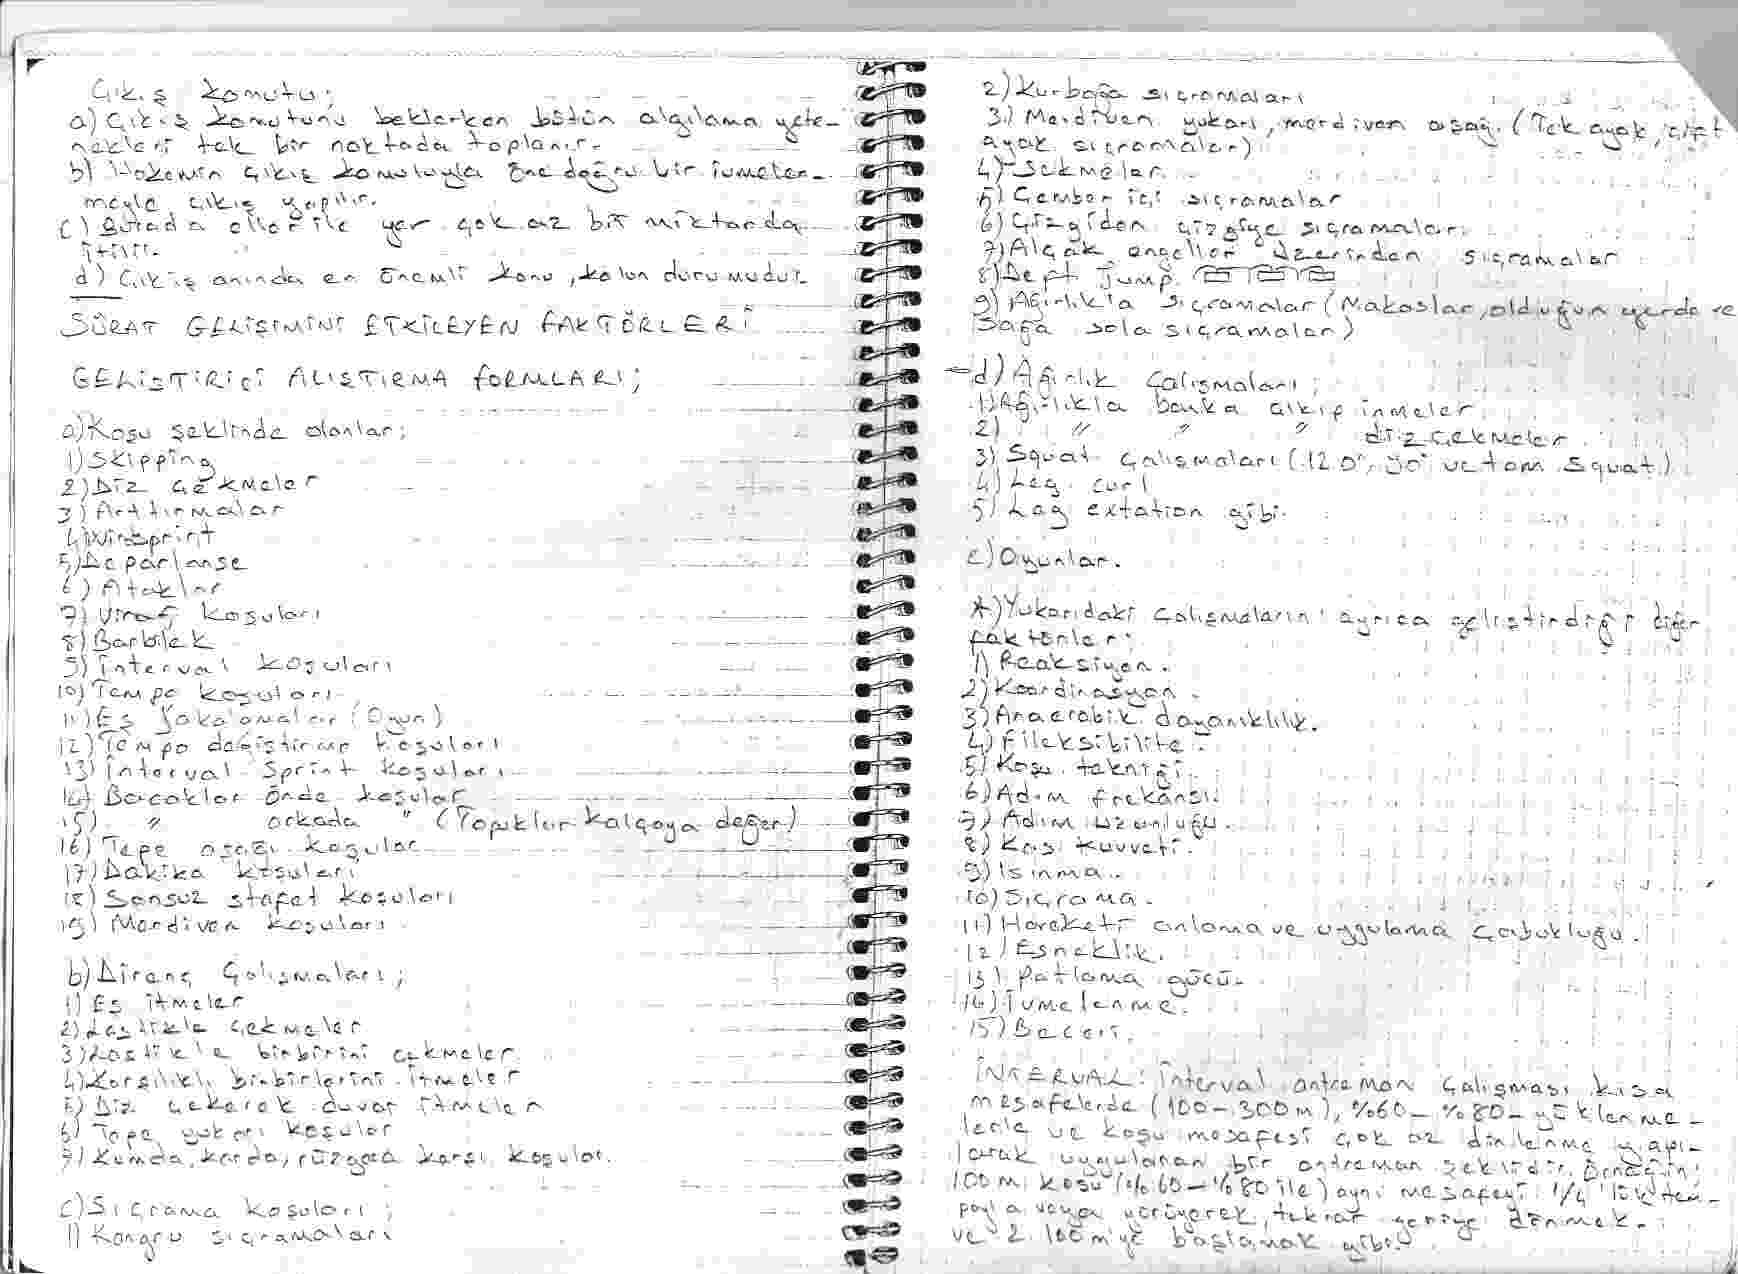 Çıkış komutu;
a) Çıkış komutunu beklerken bütün algılama yete-
nekleri tek bir noktada toplanır.
b) Hakemin çıkış komutuyla öne doğru bir ivmelen-
meyle çıkış yapılır.
c) Burada eller ile yer çok az bir miktarda
itilir.
d) Çıkış anında en önemli konu, kolun durumudur.
SÜRAT GELİŞİMİNİ ETKİLEYEN FAKTÖRLERİ
GELİŞTİRİCİ ALIŞTIRMA FORMLARI;
a) Koşu şeklinde olanlar;
1) Skipping
2) Diz çekmeler
3) Arttırmalar
4) Winsprint
5) Deparlanse
6) Ataklar
7) Viraj koşuları
8) Barbilek
9) İnterval koşuları
10) Tempo koşuları
11) Eş yakalamalar (Oyun)
12) Tempo değiştirme koşuları
13) İnterval sprint koşuları
14) Bacaklar önde koşular
15) " arkada " (Topuklar kalçaya değer)
16) Tepe aşağı koşular
17) Dakika koşuları
18) Sonsuz stafet koşuları
19) Merdiven koşuları
b) Direnç Çalışmaları;
1) Eş itmeler
2) Lastikle çekmeler
3) Lastikle birbirini çekmeler
4) Karşılıklı birbirlerini itmeler
5) Diz çekerek duvar itmeler
6) Tepe yukarı koşular
7) Kumda, karda, rüzgara karşı koşular.
c) Sıçrama koşuları;
1) Kanguru sıçramaları
2) Kurbağa sıçramaları
3) Merdiven yukarı, merdiven aşağı (Tek ayak, çift
ayak sıçramalar)
4) Sekmeler.
5) Çember içi sıçramalar
6) Çizgiden çizgiye sıçramalar.
7) Alçak engeller üzerinden sıçramalar
8) Dept Jump.
9) Ağırlıkla sıçramalar (Makaslar, olduğun yerde ve
sağa sola sıçramalar)
d) Ağırlık Çalışmaları;
1) Ağırlıkla banka çıkıp inmeler
2) " " " diz çekmeler.
3) Squat çalışmaları (120°, 90° ve tam squat)
4) Leg curl
5) Leg extation gibi.
e) Oyunlar.
*) Yukarıdaki Çalışmaların ayrıca geliştirdiği diğer
faktörler;
1) Reaksiyon.
2) Koordinasyon.
3) Anaerobik dayanıklılık.
4) Fileksibilite.
5) Koşu tekniği.
6) Adım frekansı.
7) Adım uzunluğu.
8) Kas kuvveti.
9) Isınma.
10) Sıçrama.
11) Hareketi anlama ve uygulama çabukluğu.
12) Esneklik.
13) Patlama gücü.
14) İvmelenme.
15) Beceri.
İNTERVAL: İnterval antreman çalışması kısa
mesafelerde (100-300m), %60-%80-yüklenme-
lerle ve koşu mesafesi çok az dinlenme yapı-
larak uygulanan bir antreman şeklidir. Örneğin;
100m koşu (%60-%80 ile) aynı mesafeyi 1/4 lük tem-
poyla veya yürüyerek, tekrar geriye dönmek
ve 2. 100m'ye başlamak gibi.